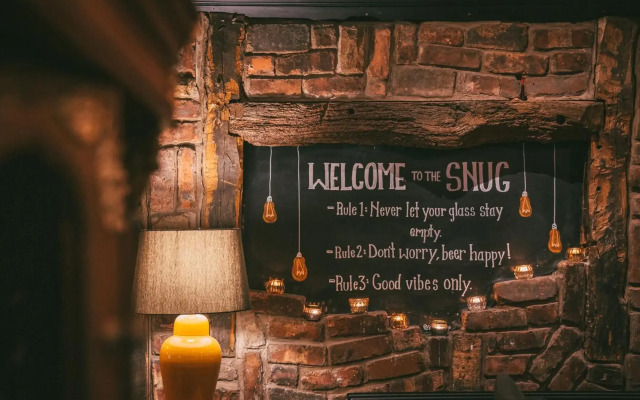 WELCOME TO THE SNUG
- Rule 1: Never let your glass stay
empty.
- Rule2: Don't worry, beer happy!
- Rule3: Good vibes only.